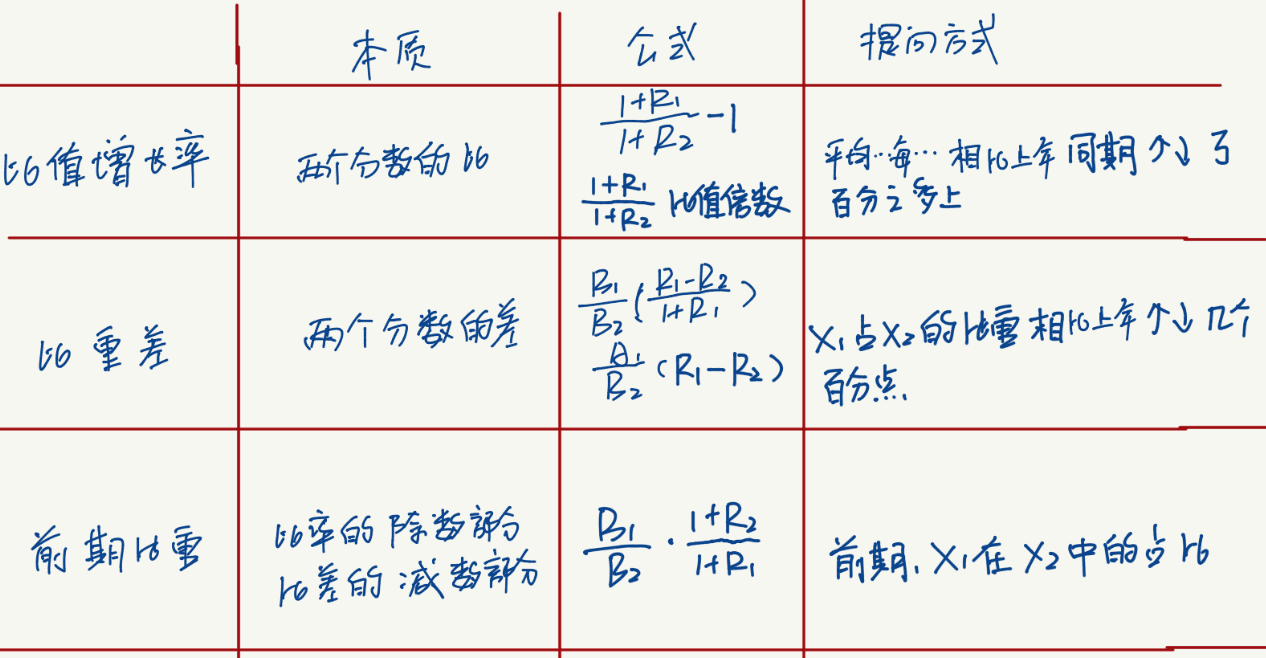 本质 公式 提问方式
比值增长率 两个分数的比 (1+R₁)/(1+R₂) -1
(1+R₁)/(1+R₂) 比值倍数
平均…每… 相比上年同期↑↓了
百分之多少
比重差 两个分数的差 B₁/B₂ ((R₁-R₂)/(1+R₁))
A₁/B₂ (R₁-R₂)
X₁占X₂的比重相比上年↑↓几个
百分点.
前期比重 比率的除数部分
比差的减数部分
B₁/B₂ · (1+R₂)/(1+R₁)
前期, X₁在X₂中的占比